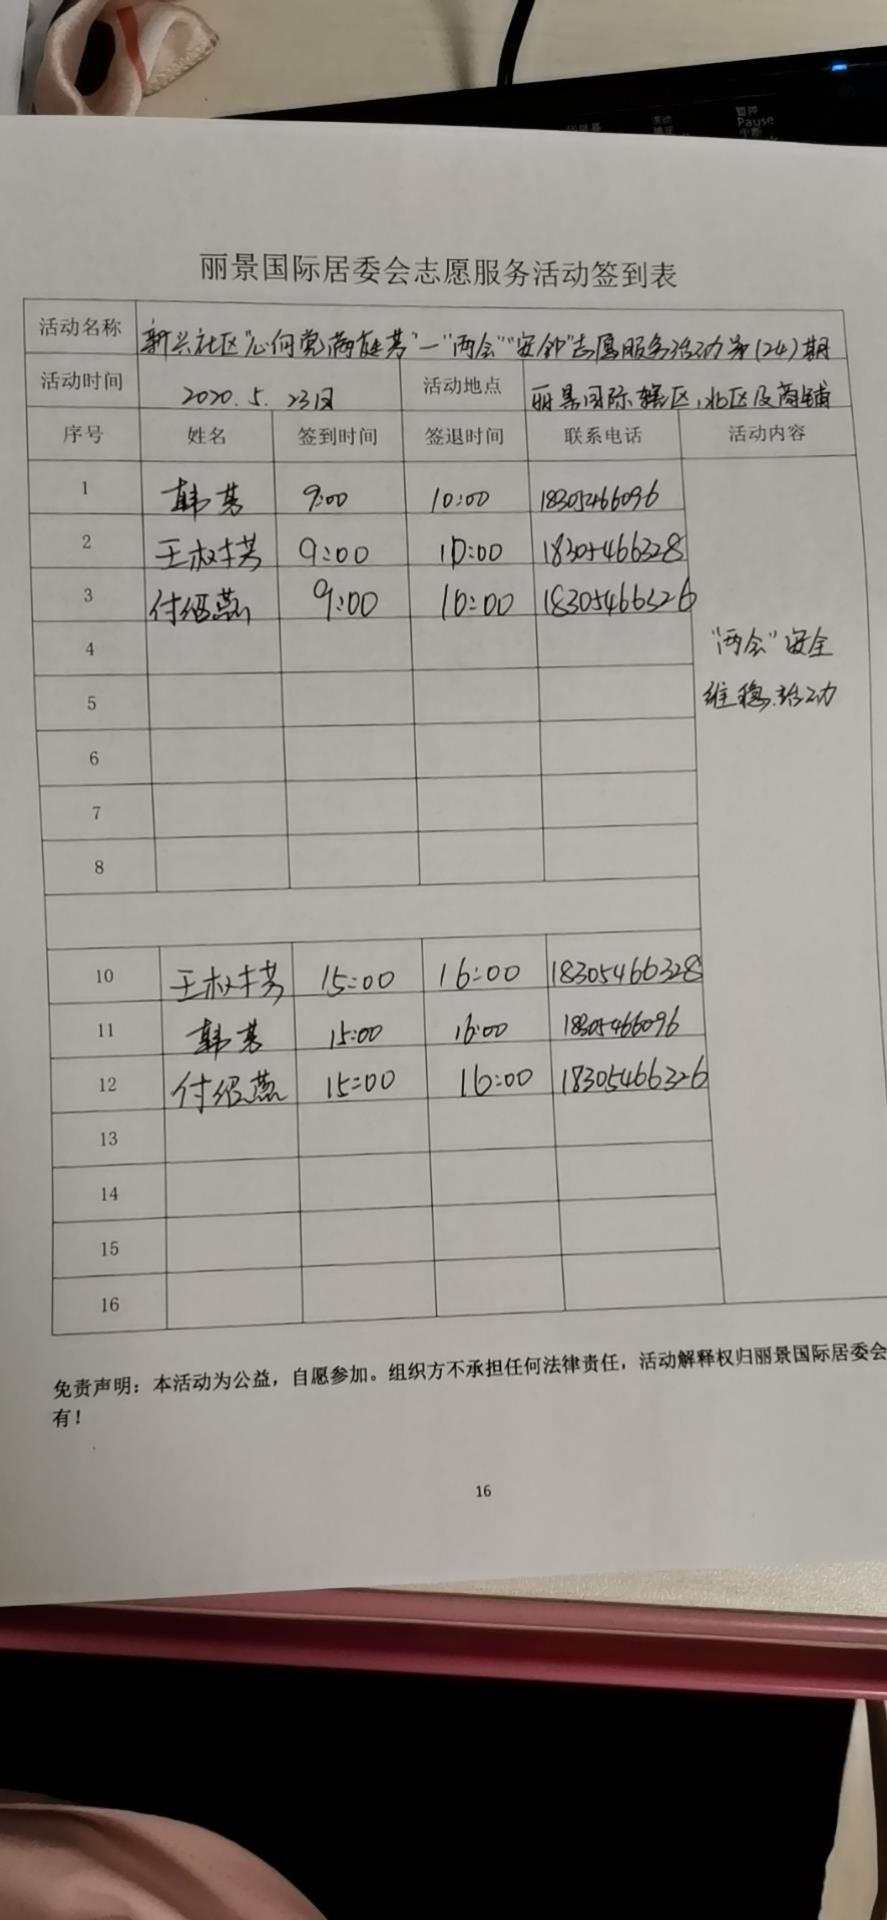 暂停
Pause
中断
丽景国际居委会志愿服务活动签到表
活动名称 新兴社区"心向党满庭芳"一"两会""安全"志愿服务活动第(24)期
活动时间 2020.5.23日 活动地点 丽景国际辖区,北区及商铺
序号 姓名 签到时间 签退时间 联系电话 活动内容
1 韩芳 9:00 10:00 18305466096
2 王淑芳 9:00 10:00 18305466328
3 付绍燕 9:00 10:00 18305466326
4
"两会"安全
5
维稳活动
6
7
8
10 王淑芳 15:00 16:00 18305466328
11 韩芳 15:00 16:00 18305466096
12 付绍燕 15:00 16:00 18305466326
13
14
15
16
免责声明：本活动为公益，自愿参加。组织方不承担任何法律责任，活动解释权归丽景国际居委会
有！
16